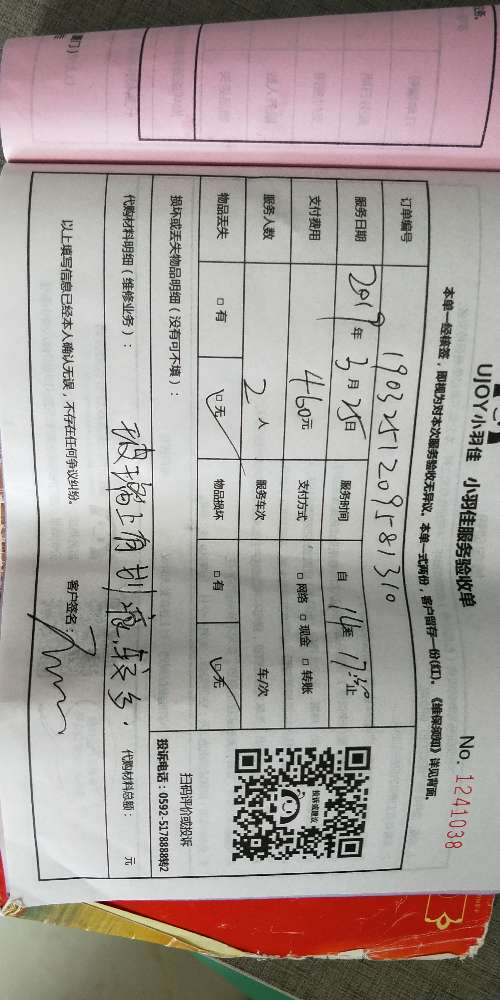 UJOY小羽佳 小羽佳服务验收单
No. 1241038
本单一经核签，即视为对本次服务验收无异议。本单一式两份，客户留存一份(红)。《维保须知》详见背面。
订单编号 1903251209581310
服务日期 2019年3月25日 服务时间 自 14 至 17:30 止
支付费用 460元 支付方式 □网络 □现金 □转账
服务人数 2人 服务车次 车/次
物品丢失 □有 ☑无 物品损坏 □有 ☑无
损坏或丢失物品明细（没有可不填）：
代购材料明细（维修业务）： 玻璃上有划痕,较多. 代购材料总额： 元
以上填写信息已经本人确认无误，不存在任何争议纠纷。 客户签名：
投诉或建议
扫码评价或投诉
投诉电话：0592-5178888转2